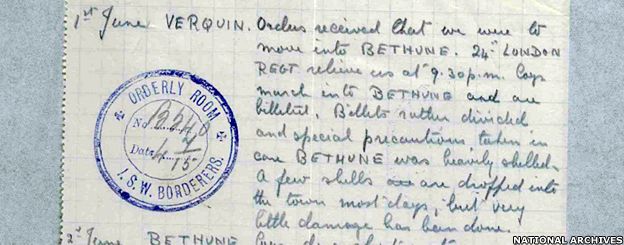 1st June VERQUIN. Orders received that we were to
move into BETHUNE. 24th LONDON
REGT relieve us at 9.30 p.m. Coys
march into BETHUNE and are
billeted. Billets rather divided
and special precautions taken in
case BETHUNE was heavily shelled.
A few shells are dropped into
the town most days, but very
little damage has been done.
2nd June BETHUNE
ORDERLY ROOM
No.
Date
15
1. S.W. BORDERERS.
NATIONAL ARCHIVES